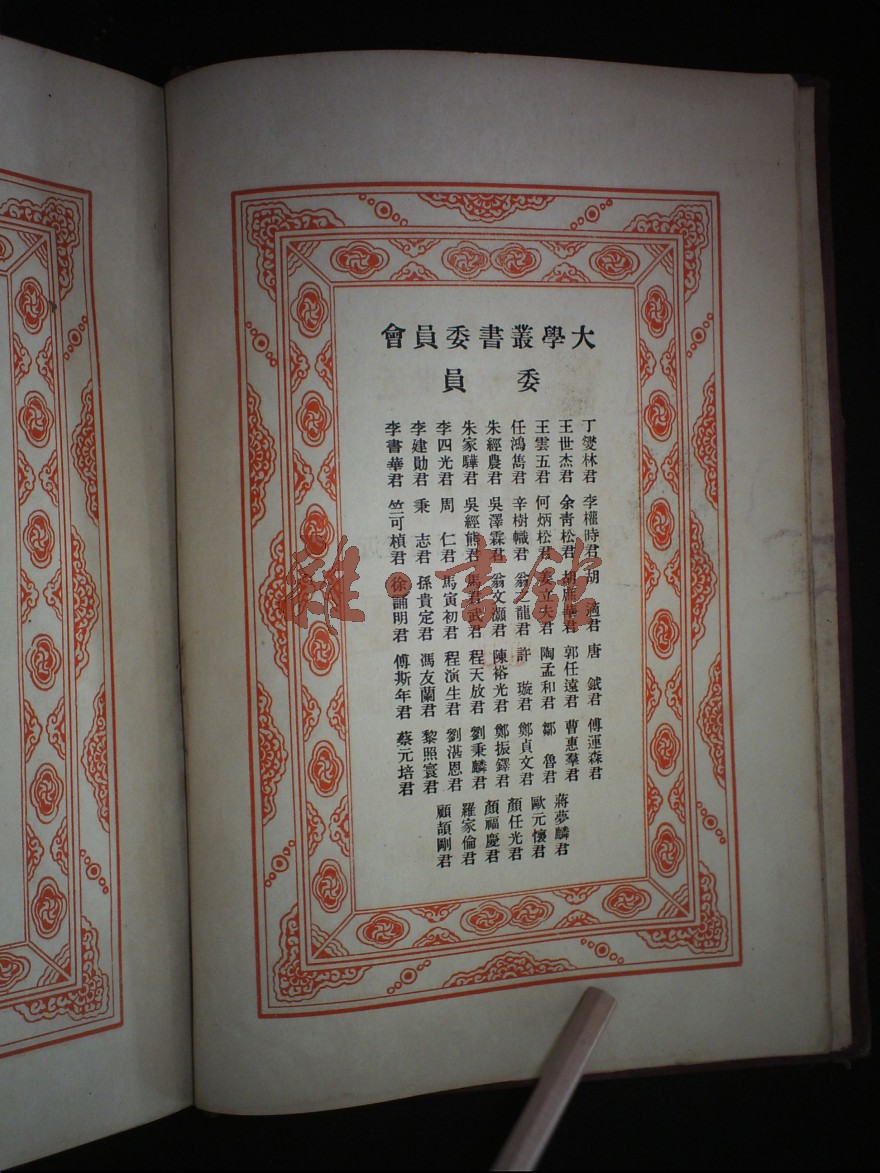 大學叢書委員會
委員
丁燮林君 李權時君 胡適君 唐鉞君 傅運森君
王世杰君 余青松君 胡庶華君 郭任遠君 曹惠羣君 蔣夢麟君
王雲五君 何炳松君 姜立夫君 陶孟和君 鄒魯君 歐元懷君
任鴻雋君 辛樹幟君 翁之龍君 許璇君 鄭貞文君 顏任光君
朱經農君 吳澤霖君 翁文灝君 陳裕光君 鄭振鐸君 顏福慶君
朱家驊君 吳經熊君 馬君武君 程天放君 劉秉麟君 羅家倫君
李四光君 周仁君 馬寅初君 程演生君 劉湛恩君 顧頡剛君
李建勛君 秉志君 孫貴定君 馮友蘭君 黎照寰君
李書華君 竺可楨君 徐誦明君 傅斯年君 蔡元培君
雜·書館